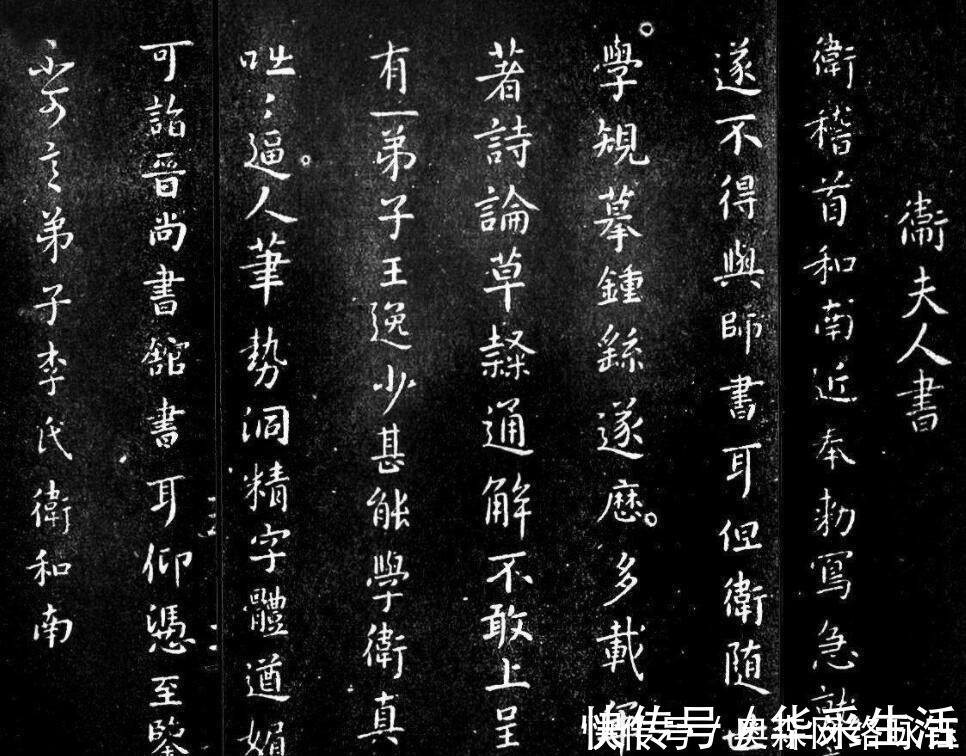 衛夫人書
衛稽首和南近奉勅寫急就
遂不得與師書耳但衛随世
學規摹鍾繇遂歷多載
著詩論草隸通解不敢上呈
有一弟子王逸少甚能學衛真
咄〻逼人筆勢洞精字體遒媚
可詣晋尚書館書耳仰憑至鑒
不可言弟子李氏衛和南
快传号